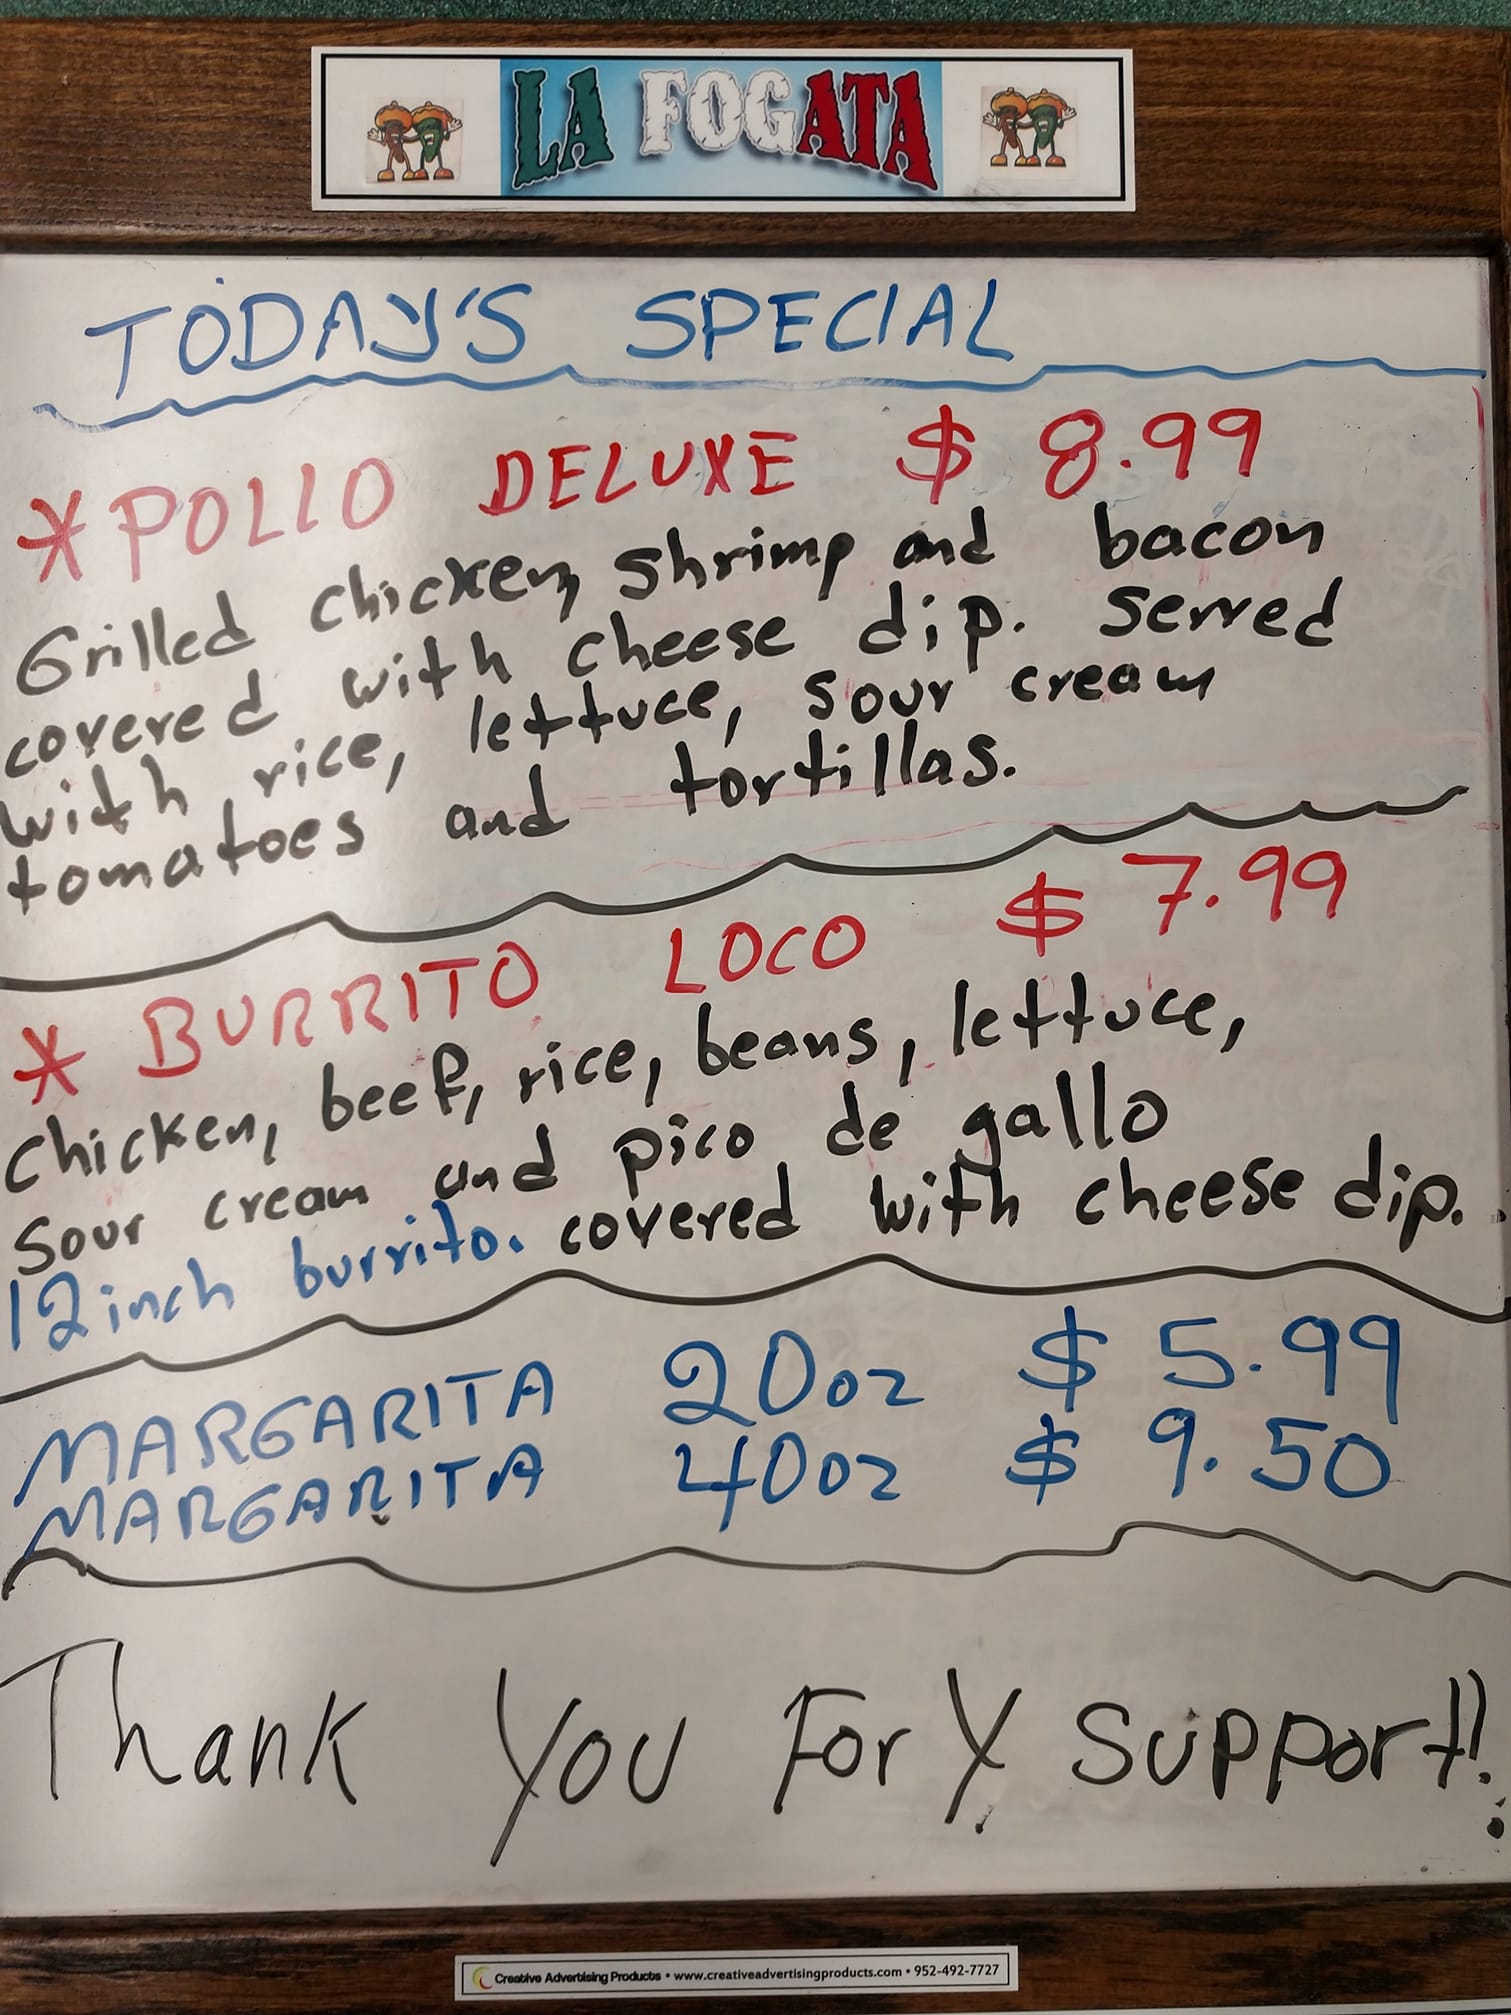 LA FOGATA
TODAY'S SPECIAL
* POLLO DELUXE $ 8.99
Grilled chicken, shrimp and bacon
covered with cheese dip. Served
with rice, lettuce, sour cream
tomatoes and tortillas.
* BURRITO LOCO $ 7.99
chicken, beef, rice, beans, lettuce,
sour cream and pico de gallo
12 inch burrito. covered with cheese dip.
MARGARITA 20oz $ 5.99
MARGARITA 40oz $ 9.50
Thank You For Y Support!!
Creative Advertising Products • www.creativeadvertisingproducts.com • 952-492-7727